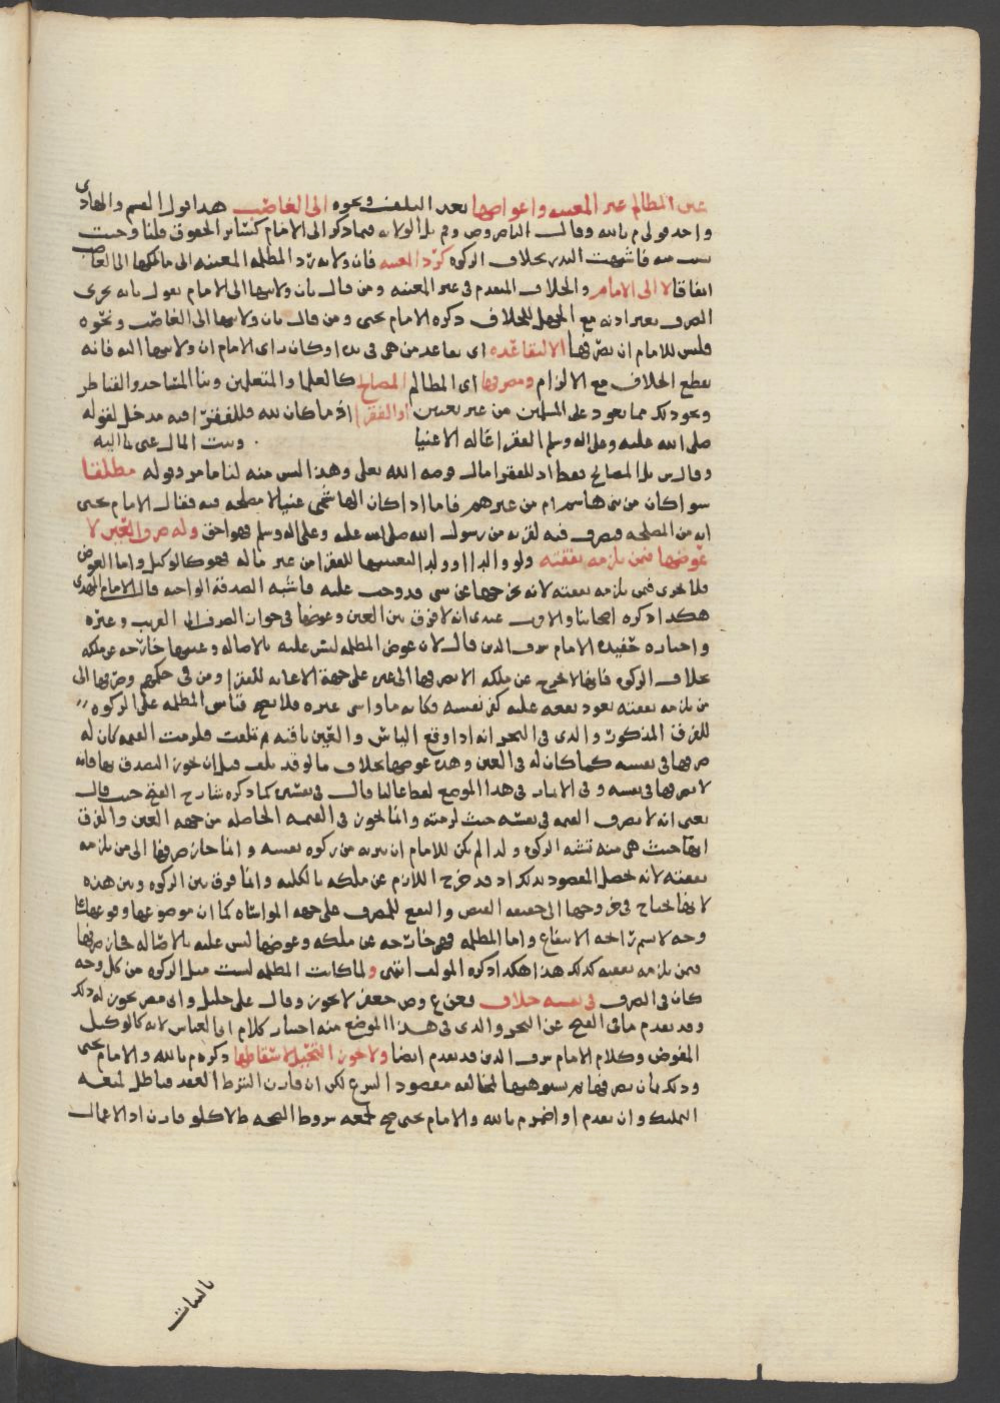 عين المظالم غير المعينه واعواضها بعد التلف ونحوه الى الغاصب هذا قول القسم والهادى
واحد قولي م بالله وقال الناصر وص وم بل الولايه فيما ذكر الى الامام كسائر الحقوق قلنا وجبت
بسبب منه فاشبهت النذر بخلاف الزكوه كرد المعينه فان ولايه رد المظلمه المعينه الى مالكها الى الغاصب
اتفاقا لا الى الامام والخلاف المتقدم في غير المعينه ومن قال بان ولايتها الى الامام يقول بانه يجزى
الصرف بغير اذنه مع الجهل للخلاف ذكره الامام يحيى ومن قال بان ولايتها الى الغاصب ونحوه
فليس للامام ان يصرفها الا لتقاعده اى تقاعد من هى في يده او كان راى الامام ان ولايتها اليه فانه
يقطع الخلاف مع الالزام ومصرفها اى المظالم المصالح كالعلما والمتعلمين وبنا المساجد والقناطر
ونحو ذلك مما يعود على المسلمين من غير تعيين او الفقرا اذ ما كان لله فللفقرا فيه مدخل لقوله
صلى الله عليه وعلى اله وسلم الفقرا عاله الاغنيا وبيت المال غنى ماليه
وقال بل المصالح فقط اذ للفقرا مال فرضه الله تعلى وهذا ليس منه لنا ما مر وقوله مطلقا
سوا كان من بنى هاشم ام من غيرهم فاما اذا كان الهاشمى غنيا لا مصلحه فيه فقال الامام يحيى
انه من المصلحه فيصرف فيه لقربه من رسول الله صلى الله عليه وعلى اله وسلم فهو احق وله صرف العين لا
عوضها فيمن تلزمه نفقته ولو والدا او ولدا لتعينها للفقرا من غير ماله فهو كالوكيل واما العوض
فلا يجزى فيمن تلزمه نفقته لانه يخرجها عن شى قد وجب عليه فاشبه الصدقه الواجبه قال الامام المهدى
هكذا ذكره اصحابنا والاقرب عندى ان لا فرق بين العين وعوضها في جواز الصرف الى القريب وغيره
واختاره حفيده الامام شرف الدين قال لان عوض المظلمه ليس عليه بالاصاله وعينها خارجه عن ملكه
بخلاف الزكوه فانها لا تخرج عن ملكه الا بصرفها الى غيره على جهة الاعانه للفقرا ومن في حكمهم وصرفها الى
من تلزمه نفقته يعود نفعه عليه كفى نفسه فكانه ما واسى غيره فلا يصح قياس المظلمه على الزكوه
للفرق المذكور والذى في البحر انه اذا وقع الياس والعين باقيه ثم تلفت فلزمت القيمه كان له
صرفها في نفسه كما كان له في العين وهذه عوضها بخلاف ما لو قد تلف قبل ان يجوز التصدق بها فانه
لا يصرفها في نفسه وفي الاثمار في هذا الموضع لفظ غالبا قال في تفسيره كما ذكره شارح الفتح حيث قال
يعنى انه لا يصرف القيمه في نفسه حيث لزمته وانما يجوز في القيمه الحاصله من جهه العين والفرق
انها حيث هى منه تشبه الزكوه ولذا لم يكن للامام ان يبريه من زكوه نفسه وانما جاز صرفها الى من تلزمه
نفقته لانه حصل المقصود بذلك اذ قد خرج اللازم عن ملكه بالكليه وانما فرق بين الزكوه وبين هذه
لانها تحتاج في خروجها الى حقيقه القبض والنفع للمصرف على جهه المواساه كما ان موضوعها وقوعها
وجه لا يسم رائحه الانتفاع واما المظلمه فهى خارجه عن ملكه وعوضها ليس عليه بالاصاله فجاز صرفها
فيمن تلزمه نفقته كذلك هذا هكذا ذكره المولف انتهى ولما كانت المظلمه ليست مثل الزكوه من كل وجه
كان في الصرف في نفسه خلاف فعن ع وص جعفر لا يجوز وقال على خليل واى مضر يجوز له ذلك
وقد تقدم ما في الفتح عن البحر والذى في هذا الموضع منه اختيار كلام ابى العباس لانه كالوكيل
المفوض وكلام الامام شرف الدين قد تقدم ايضا ولا يجوز التحيل لاسقاطها ذكره م بالله والامام يحيى
وذلك بان يصرفها ثم يستوهبها لمخالفه مقصود الشرع لكن ان قارن الشرط العقد فباطل لمنعه
التمليك وان تقدم او اضمر م بالله والامام يحيى صح لجمعه شروط الصحه ط لا كلو قارن اذ الاعمال
بالنيات